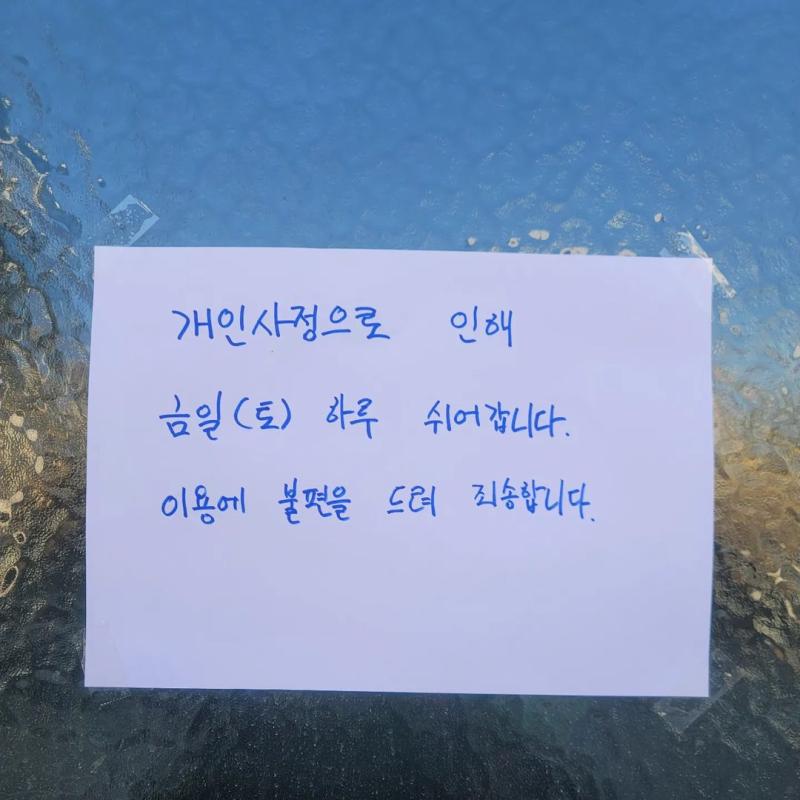 개인사정으로 인해
금일(토) 하루 쉬어갑니다.
이용에 불편을 드려 죄송합니다.